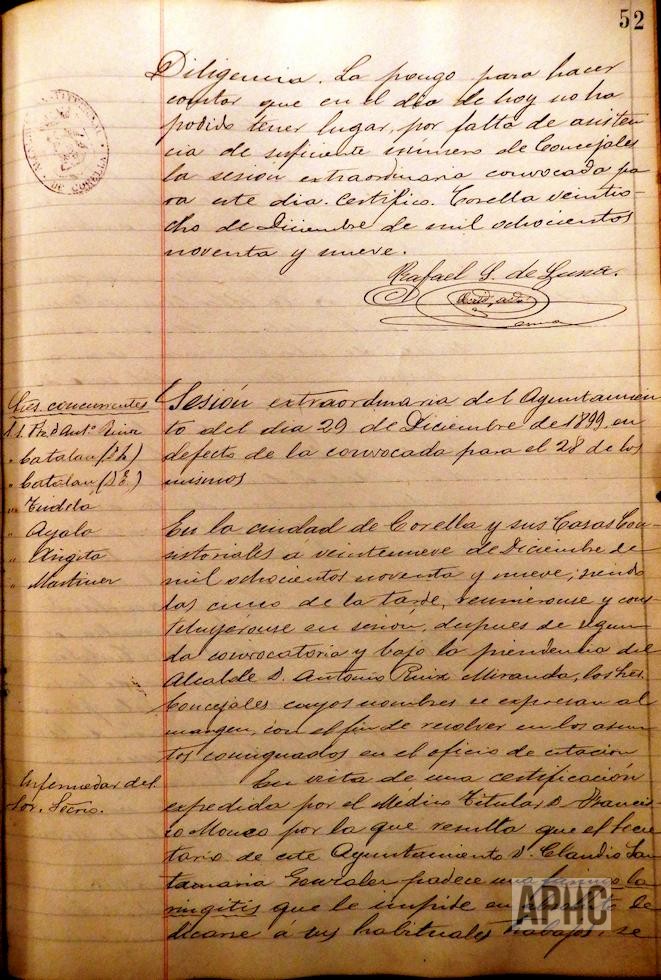 52
Diligencia. La pongo para hacer
constar que en el dia de hoy no ha
podido tener lugar, por falta de asisten
cia de suficiente número de Concejales
la sesión extraordinaria convocada pa
ra este dia. Certifico. Corella veintio-
cho de Diciembre de mil ochocientos
noventa y nueve.
Rafael S. de Luna.
DE CORELLA
Sres. concurrentes
S.S. Pred. Antº Ruiz
" Catalan (D. L.)
" Catalan (D. E.)
" Tudela
" Ayala
" Angota
" Martinez
Sesión extraordinaria del Ayuntamien
to del dia 29 de Diciembre de 1899, en
defecto de la convocada para el 28 de los
mismos
En la ciudad de Corella y sus Casas Con
sistoriales a veintenueve de Diciembre de
mil ochocientos noventa y nueve, siendo
las cinco de la tarde, reunieronse y cons
tituyéronse en sesión, despues de segun
da convocatoria y bajo la presidencia del
Alcalde D. Antonio Ruiz Miranda, los Sres.
Concejales cuyos nombres se expresan al
margen, con el fin de resolver en los asun
tos consignados en el oficio de citación
Enfermedad del
Sor. Secrio.
En vista de una certificación
expedida por el Médico Titular D. Francis
co Monco por la que resulta que el Secre
tario de este Ayuntamiento D. Claudio San
tamaria Gonzalez padece una la
ringitis que le impide en de
dicarse a sus habituales trabajos, se
APHC